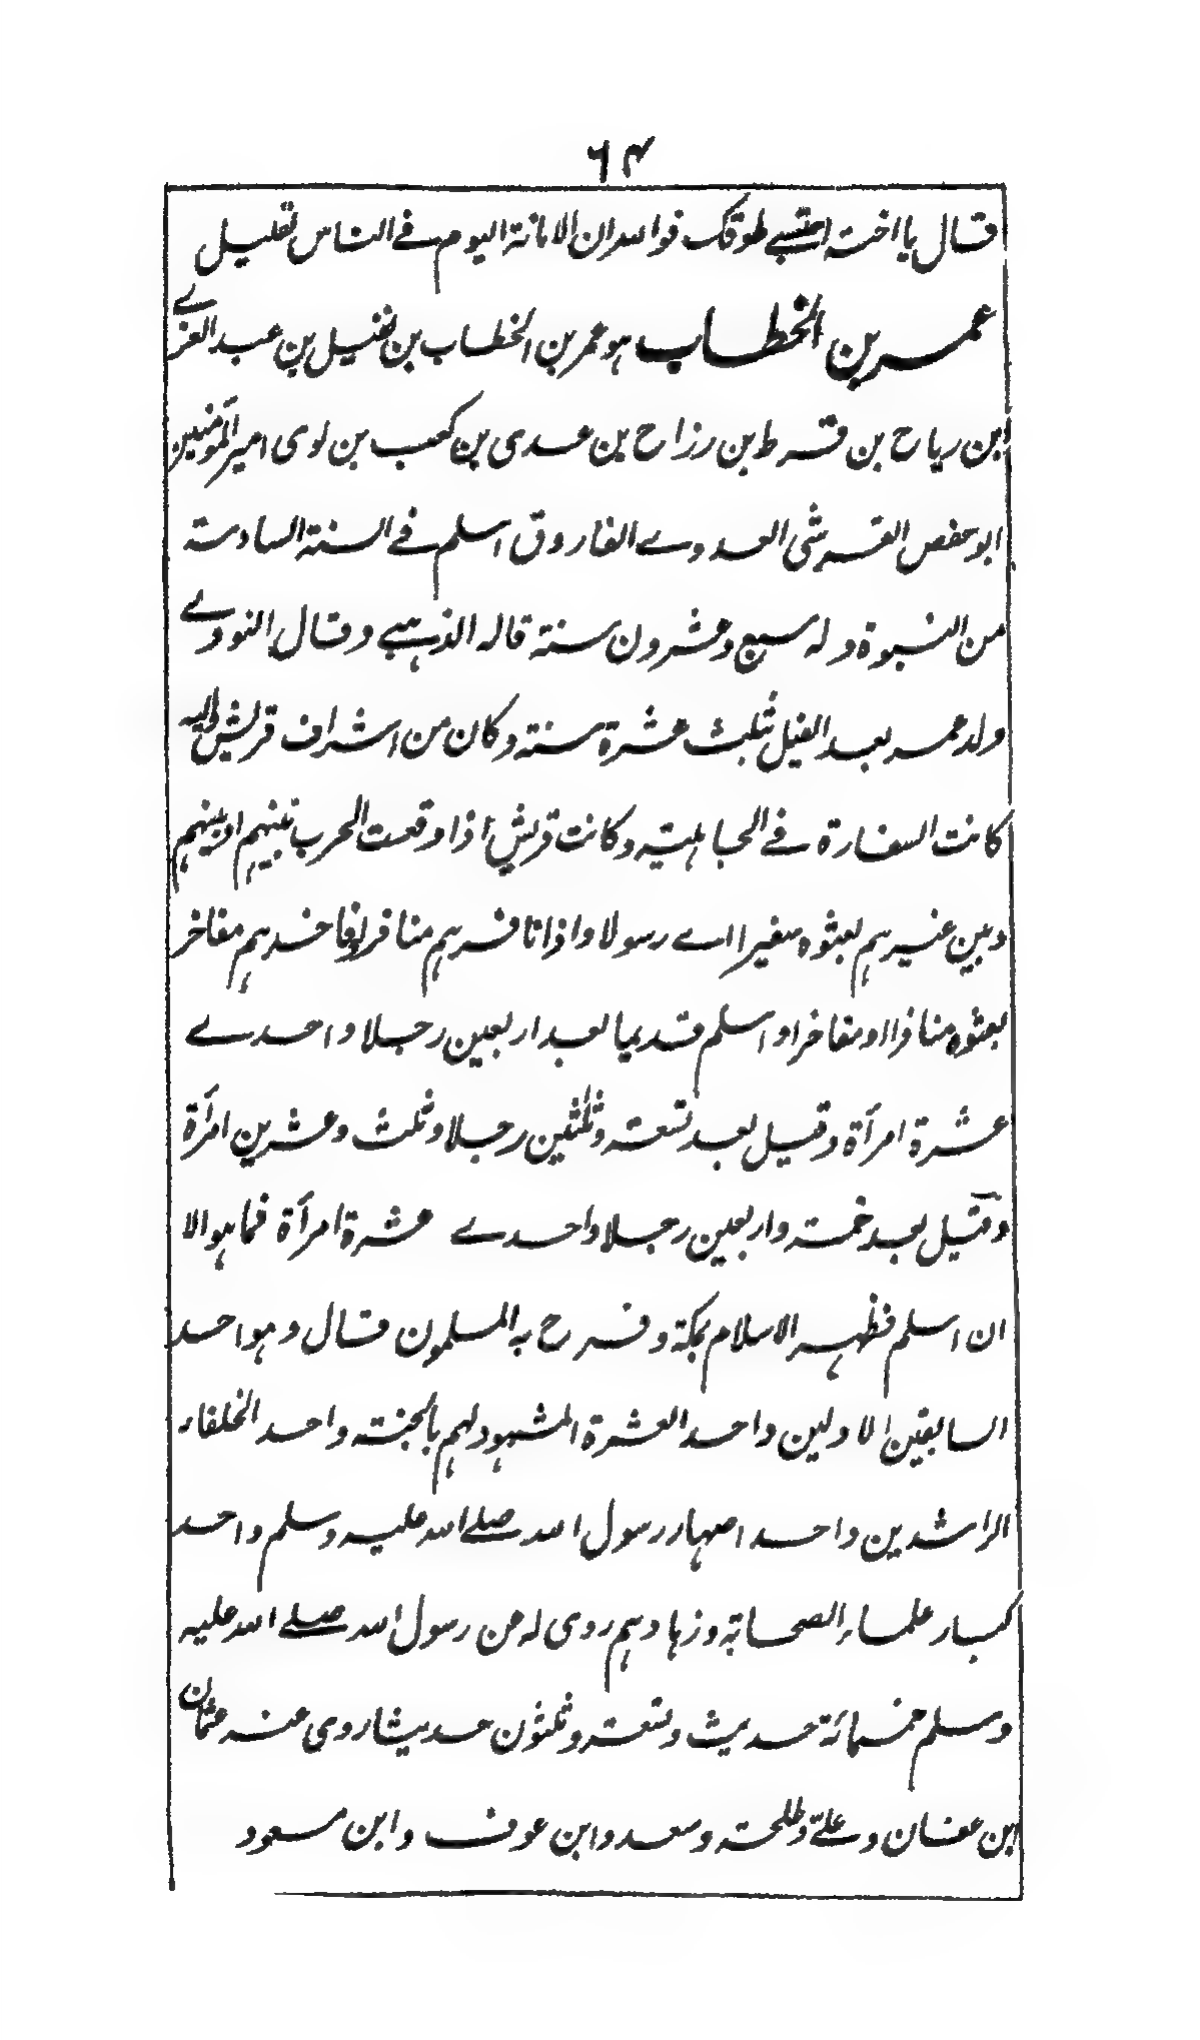 ٦٤
قال يا اخته احتسبي طوقك فوالله ان الامانة اليوم في الناس لقليل
عمر بن الخطاب هو عمر بن الخطاب بن نفيل بن عبد العزى
ابن رياح بن قرط بن رزاح بن عدى بن كعب بن لوى امير المؤمنين
ابو حفص القرشى العدوى الفاروق اسلم في السنة السادسة
من النبوة وله سبع وعشرون سنة قاله الذهبي وقال النووى
ولد عمر بعد الفيل بثلث عشرة سنة وكان من اشراف قريش واليه
كانت السفارة في الجاهلية وكانت قريش اذا وقعت الحرب بينهم او بينهم
وبين غيرهم بعثوه سفيرا اى رسولا واذا نافرهم منافر او فاخرهم مفاخر
بعثوه منافرا او مفاخرا واسلم قديما بعد اربعين رجلا واحدى
عشرة امرأة وقيل بعد تسعة وثلثين رجلا وثلث وعشرين امرأة
وقيل بعد خمسة واربعين رجلا واحدى عشرة امرأة فما هو الا
ان اسلم فظهر الاسلام بمكة وفرح به المسلمون قال وهو احد
السابقين الاولين واحد العشرة المشهود لهم بالجنة واحد الخلفاء
الراشدين واحد اصهار رسول الله صلى الله عليه وسلم واحد
كبار علماء الصحابة وزهادهم روى له عن رسول الله صلى الله عليه
وسلم خمسمائة حديث وتسعة وثلثون حديثا روى عنه عثمان
ابن عفان وعلىّ وطلحة وسعد وابن عوف وابن مسعود